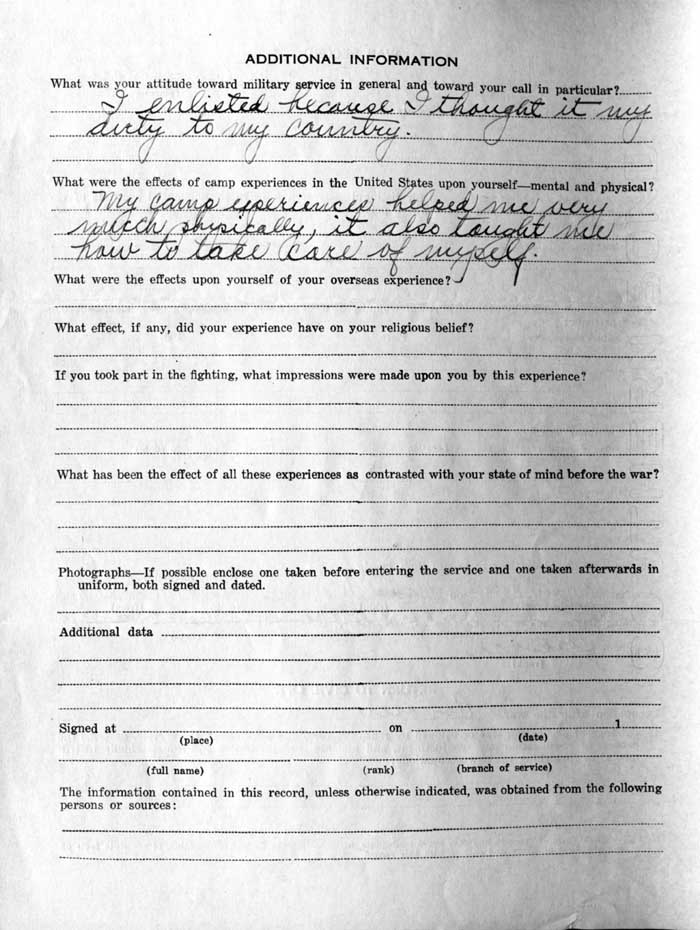 ADDITIONAL INFORMATION
What was your attitude toward military service in general and toward your call in particular?
I enlisted because I thought it my
duty to my country.
What were the effects of camp experiences in the United States upon yourself—mental and physical?
My camp experiences helped me very
much physically, it also taught me
how to take care of myself.
What were the effects upon yourself of your overseas experience?
What effect, if any, did your experience have on your religious belief?
If you took part in the fighting, what impressions were made upon you by this experience?
What has been the effect of all these experiences as contrasted with your state of mind before the war?
Photographs—If possible enclose one taken before entering the service and one taken afterwards in
uniform, both signed and dated.
Additional data
Signed at on 1
(place) (date)
(full name) (rank) (branch of service)
The information contained in this record, unless otherwise indicated, was obtained from the following
persons or sources: